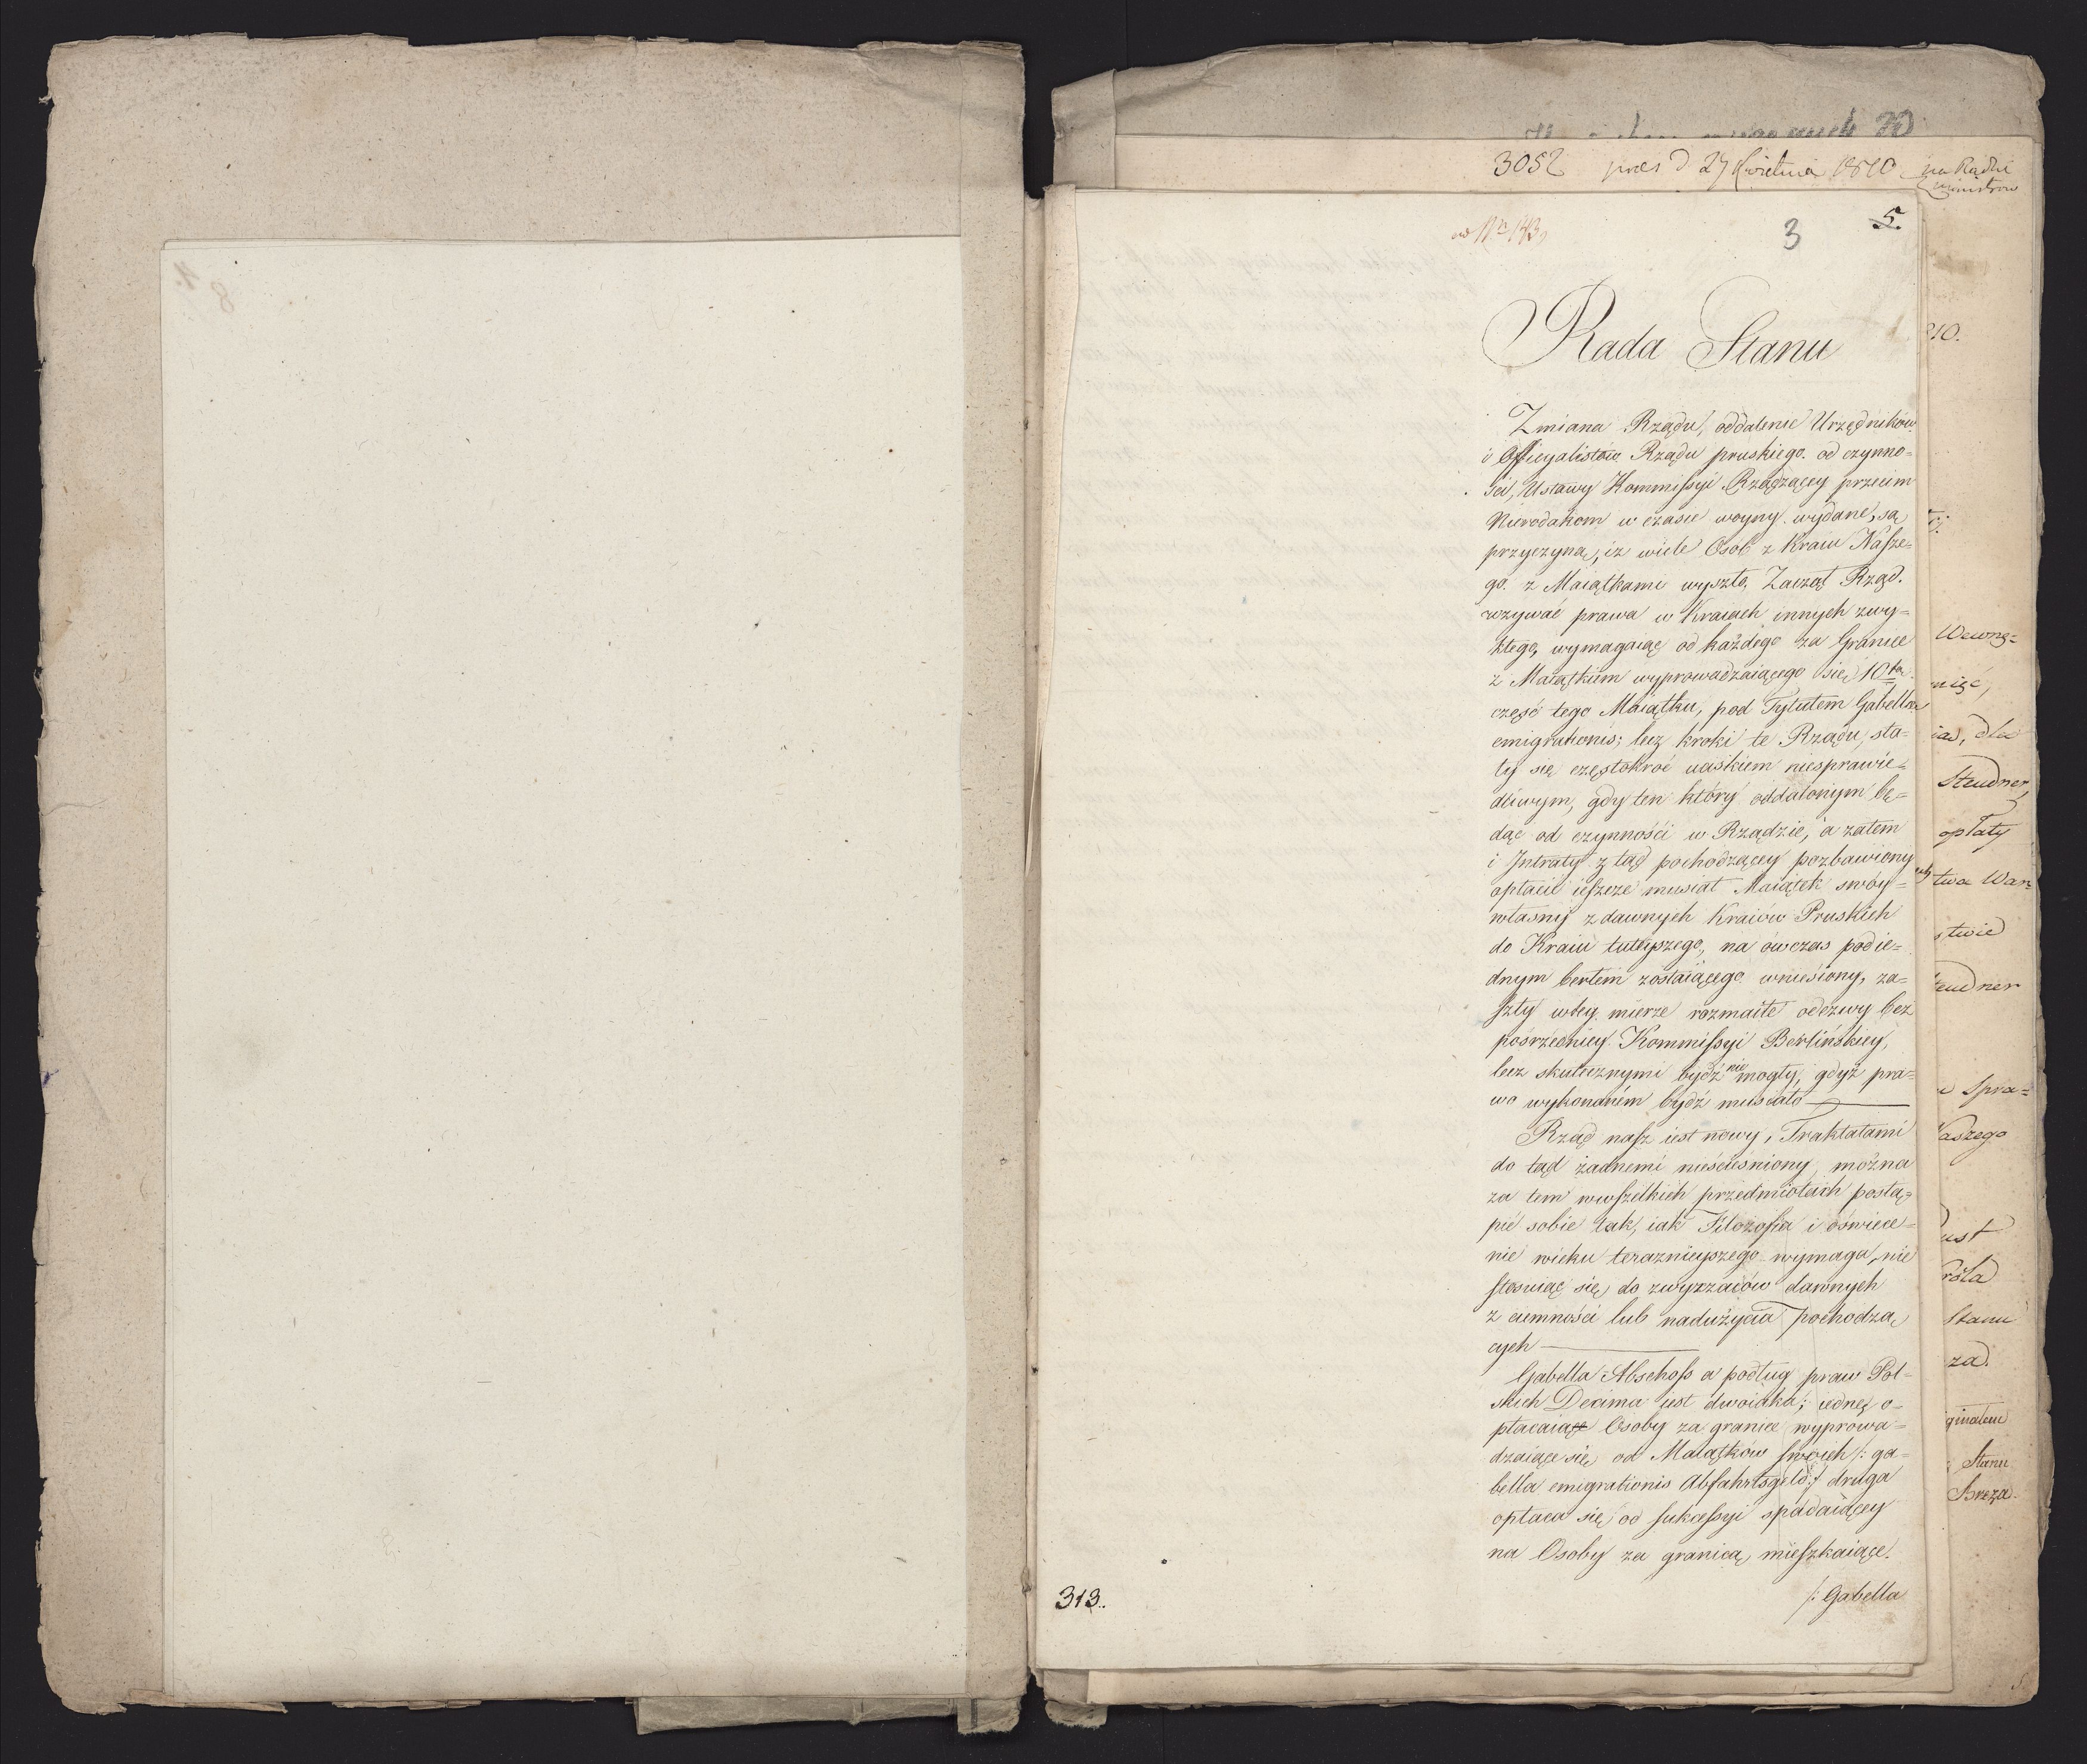 3052 pres d 27 Kwietnia 1810 na Radzie
Ministrów
3
5.
Rada Stanu
Zmiana Rządu, oddalenie Urzędników
i Officyalistów Rządu pruskiego od czynno=
ści, Ustawy Kommissyi Rządzącey przeciw
Nierodakom w czasie woyny wydane, są
przyczyną, iż wiele Osób z Kraiu Nasze=
go z Maiątkami wyszło, Zaczął Rząd
wzywać prawa w Kraiach innych zwy=
kłego, wymagaiąc od każdego za Granice
z Maiątkiem wyprowadzaiącego się 10tą
część tego Maiątku, pod Tytułem Gabella
emigrationis; lecz kroki te Rządu, sta=
ły się częstokroć uciskiem niesprawie=
dliwym, gdy ten który oddalonym bę=
dąc od czynności w Rządzie, a zatem
i Intraty z tąd pochodzącey pozbawiony
opłacić ieszcze musiał Maiątek swóy
własny z dawnych Kraiów Pruskich
do Kraiu tuteyszego, na ówczas pod ie=
dnym berłem zostaiącego wniesiony, za=
szły w tey mierze rozmaite odezwy bez
pośrzedniey Kommissyi Berlińskiey,
lecz skutecznymi bydź nie mogły, gdyż pra=
wo wykonaném bydź musiało
Rząd nasz iest nowy, Traktatami
do tąd żadnemi nieścieśniony, można
za tem w wszelkich przedmiotach postą=
pić sobie tak, iak Filozofia i oświece=
nie wieku teraznieyszego wymaga, nie
stosuiąc się do zwyczaiów dawnych
z ciemności lub nadużycia pochodzą
cych
Gabella Abschoss a podług praw Pol=
skich Decima iest dwoiaka; iednę o=
płacaią Osoby za granice wyprowa=
dzaiące się od Maiątków swoich /: ga=
bella emigrationis Abfahrtsgeld :/ druga
opłaca się od sukcessyi spadaiącey
na Osoby za granicą mieszkaiące.
/: Gabella
313.
810.
Wewnę=
dla
Steudner,
opłaty
twa War=
stwie
Steudner
Spra=
Naszego
Króla
Stanu
za.
ginałem
Stanu
Breza.